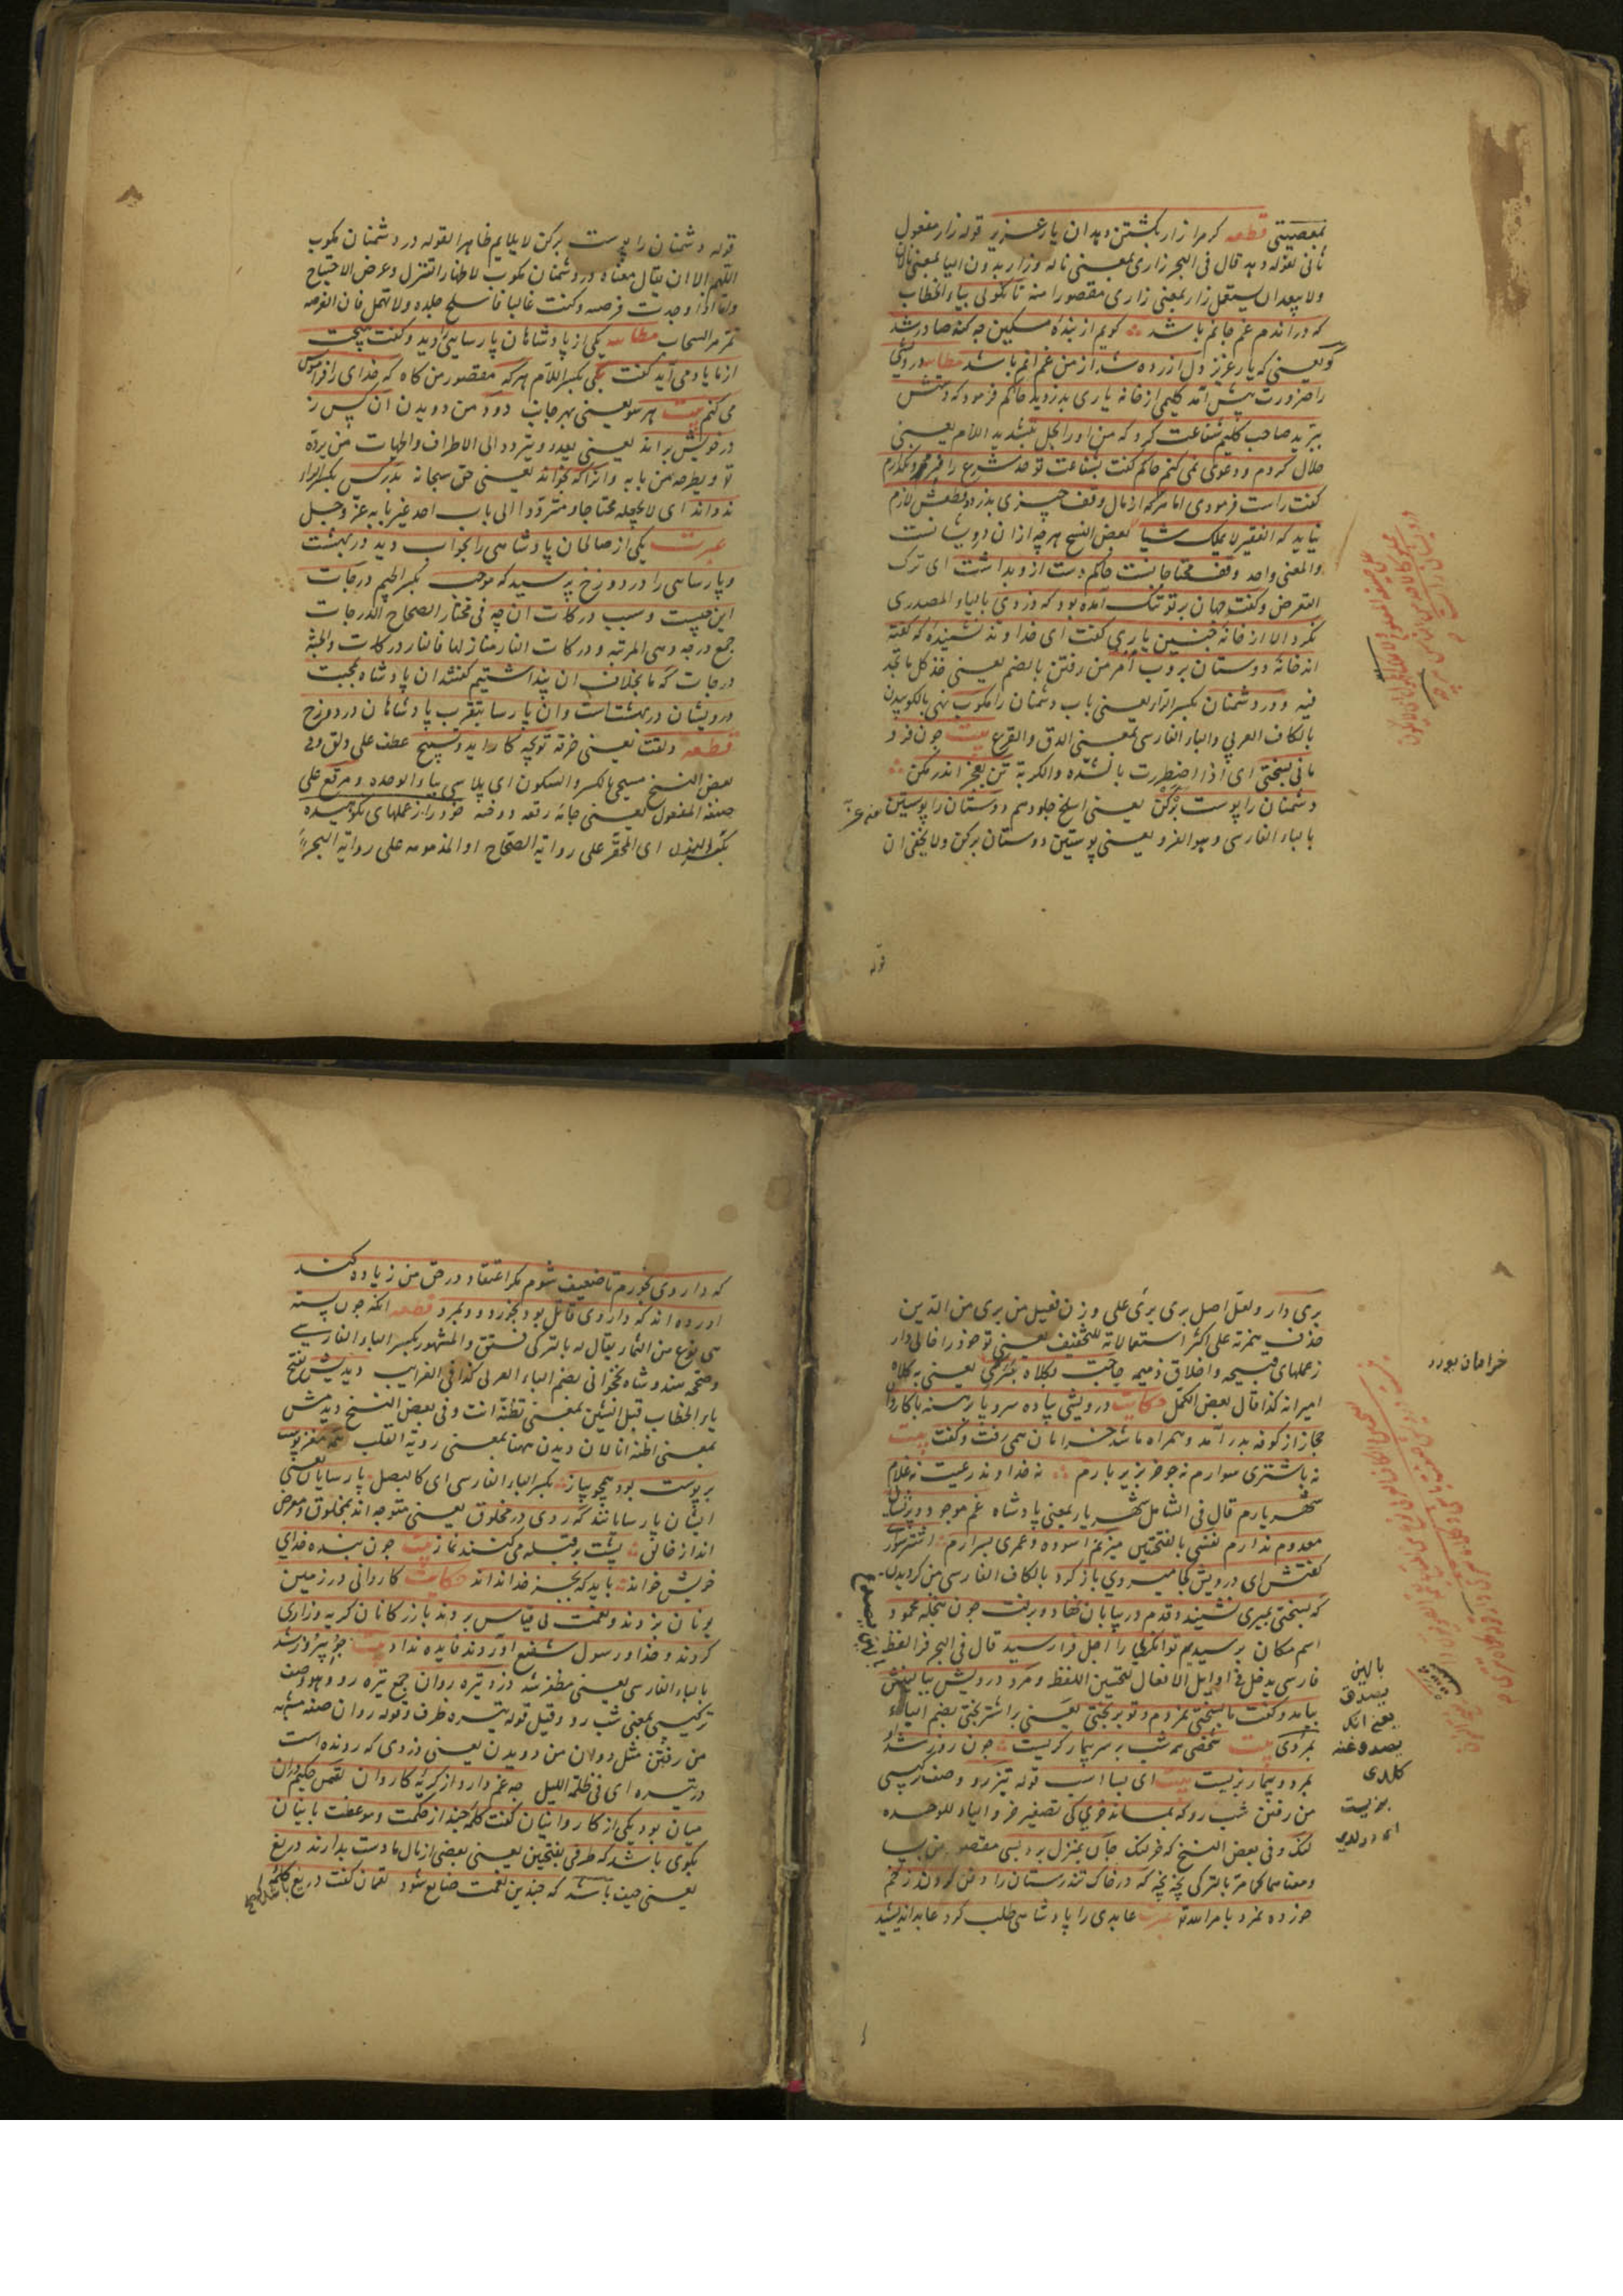 بمعصیتی قطعه کر مرا زار بکشتن دهد ان یار عزیز قوله زار مفعول
ثانی لقوله دهد قال فی البحر زاری بمعنی ناله وزار بدون الیا بمعنی نالان
ولا یبعد ان یستعمل زار بمعنی زاری مقصورا منه تا نکوئی بیاء الخطاب
که در اندم غم جانم باشد کویم از بنده مسکین چه کنه صادر شد
کو یعنی که یار عزیز دل ازرده شد از من غم انم باشد مطایبه درویشی
را ضرورت پیش آمد کلیمی از خانه یاری بدزدید حاکم فرمود که دستش
ببرید صاحب کلیم شفاعت کرد که من اورا بحل بتشدید اللام یعنی
حلال کردم ودعوی نمی کنم حاکم کفت بشفاعت تو حد شرع را فرو نکذارم
کفت راست فرمودی اما هرکه از مال وقف چیزی بدزدد قطعش لازم
نیاید که الفقیر لا یملک شیئا بعض النسخ هرچه ازان درویشانست
والمعنی واحد وقف محتاجانست حاکم دست ازو بداشت ای ترک
التعرض وکفت جهان بر تو تنک آمده بود که دزدی بالیاء المصدری
نکردی الا از خانه چنین یاری کفت ای خداوند نشنیده که کفته
اند خانه دوستان بروب امر من رفتن بالضم یعنی خذ کل ما تجد
فیه ودر دشمنان بکسر الراء یعنی باب دشمنان را مکوب نهی بالکوبیدن
بالکاف العربی والباء الفارسی بمعنی الدق والقرع بیت چون فرو
مانی بسختی ای اذا اضطررت بالشده والکربة تن بعجز اندر مکن
دشمنان را پوست برکن یعنی اسلخ جلودهم دوستان را پوستین
بالباء الفارسی وهو الفرو یعنی پوستین دوستان برکن ولا یخفی ان
قوله
قوله دشمنان را پوست برکن لا یلایم ظاهرا لقوله در دشمنان مکوب
اللهم الا ان یقال معناه در دشمنان مکوب لاظهار التنزل وعرض الاحتیاج
واما اذا وجدت فرصة وکنت غالبا فاسلخ جلده ولا تمهل فان الفرصة
تمر مر السحاب مطایبه یکی از پادشاهان پارسایی را دید وکفت هیچت
از ما یاد می آید کفت بلی بکسر اللام هرکه مقصور من کاه که خدای را فراموش
می کنم بیت هر سو یعنی بهر جانب دود من دویدن ان کس ز
در خویش براند یعنی یعدو ویتردد الی الاطراف والجهات من یرده
تو ویطرحه من بابه وانرا که بخواند یعنی حق سبحانه بدر کس بکسر الراء
ندواند ای لا یجعله محتاجا ومترددا الی باب احد غیر بابه عز وجل
عبرت یکی از صالحان پادشاهی را بخواب دید در بهشت
وپارسایی را در دوزخ پرسید که موجب بکسر الجیم درجات
این چیست وسبب درکات ان چه فی مختار الصحاح الدرجات
جمع درجه وهی المرتبه ودرکات النار منازلها فالنار درکات والجنة
درجات که ما بخلاف ان پنداشتیم کفتند ان پادشاه بمحبت
درویشان در بهشت است وان پارسا بتقرب پادشاهان در دوزخ
قطعه دلقت یعنی خرقه تو بچه کار اید وتسبیح عطف علی دلق وفی
بعض النسخ مسحی بالکسر والسکون ای پلاسی بیاء الوحده ومرقع علی
صیغة المفعول یعنی جامه رقعه دوخته خود را ز عملهای نکوهیده
بکسر النون ای المحقر علی روایة الصحاح او المذمومه علی روایة البحر
بری دار ولعل اصل بری بریء علی وزن فعیل من بری من الدین
حذف همزته علی اکثر استعمالاته للتخفیف یعنی تو خود را خالی دار
ز عملهای قبیحه واخلاق ذمیمه حاجت بکلاه بترکی یعنی به کلاه
امیرانه کذا قال بعض الکمل حکایت درویشی پیاده سر وپا برهنه با کاروان
حجاز از کوفه بدر آمد وهمراه ما شد خرامان همی رفت وکفت بیت
نه باشتری سوارم نه چو خر بزیر بارم نه خداوند رعیت نه غلام
شهریارم قال فی الشامل شهریار بمعنی پادشاه غم موجود وپریشانی
معدوم ندارم نفسی بالفتحتین میزنم اسوده وعمری بسر آرم اشتر سواری
کفتش ای درویش کجا میروی باز کرد بالکاف الفارسی من کردیدن
که بسختی بمیری نشنید وقدم در بیابان نهاد وبرفت چون بنخله محمود
اسم مکان برسیدیم توانکر را اجل فرا رسید قال فی البحر فرا لفظ
فارسی یدخل فی اوایل الافعال لتحسین اللفظ ومرد درویش ببالینش
بیامد وکفت ما بسختی نمردیم وتو بر بختی یعنی بر اشتر بختی بضم الباء
بمردی بیت شخصی همه شب بر سر بیمار کریست چون روز شد
بمرد وبیمار بزیست بیت ای بسا اسب قوله تیزرو وصف ترکیبی
من رفتن شب رو که بماند خرکی تصغیر خر والیاء للوحده
لنک وفی بعض النسخ که خر لنک جان بمنزل برد بسی مقصور من بسیا
ومعناهما کما مر بالترکی نیجه نیجه که در خاک تندرستان را دفن کردند زخم
خورده نمرد بامر الله تعالی عبرت عابدی را پادشاهی طلب کرد عابد اندیشید
خرامان یورر
بالین
یصدق
کلدی
که داروی بخورم تا ضعیف شوم مکر اعتقاد در حق من زیاده کند
اورده اند که داروی قاتل بود بخورد وبمرد قطعه انکه چون پسته
هی نوع من الثمار یقال له بالترکی فستق والمشهور بکسر الباء الفارسی
وصححه سندوشاه نخجوانی بضم الباء العربی کذا فی الغرایب دیدیش بفتح
یاء الخطاب قبل الشین بمعنی تظنه انت وفی بعض النسخ دیدمش
بمعنی اظنه انا لان دیدن ههنا بمعنی رویة القلب همه مغز پوست
بر پوست بود همچو پیاز بکسر الباء الفارسی ای کالبصل پارسایان یعنی
ایشان پارسایانند که روی در مخلوق یعنی متوجه اند بمخلوق ومعرض
اند از خالق پشت بر قبله می کنند نماز بیت چون بنده خدای
خویش خواند باید که بجز خدا نداند حکایت کاروانی در زمین
یونان بزدند ونعمت بی قیاس بردند بازرکانان کریه وزاری
کردند وخدا ورسول شفیع آوردند فایده نداد بیت چو پیروز شد
بالباء الفارسی یعنی مظفر شد دزد تیره روان جمع تیره رو وهو وصف
ترکیبی بمعنی شب رو وقیل قوله تیره ظرف وقوله روان صفة مشبهه
من رفتن مثل دوان من دویدن یعنی دزدی که رونده است
در تیره ای فی ظلمة اللیل چه غم دارد از کریه کاروان لقمان حکیم دران
میان بود یکی از کاروانیان کفت کلمه چند از حکمت وموعظت با ینان
بکوی باشد که طرفی بفتحتین یعنی بعضی از مال ما دست بدارند دریغ
یعنی حیف باشد که چندین نعمت ضایع شود لقمان کفت دریغ کلمه